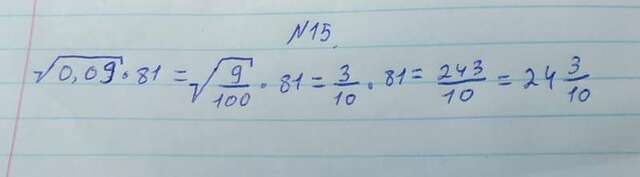 N15.
√0,09 · 81 = √9/100 · 81 = 3/10 · 81 = 243/10 = 24 3/10